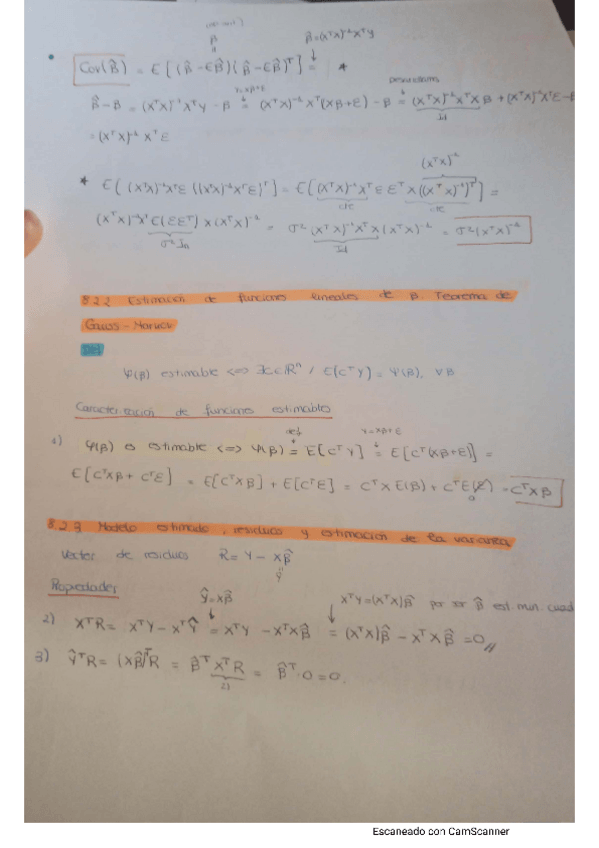 β̂ = (XᵀX)⁻¹XᵀY
β
• Cov(β̂) = E[(β̂ - Eβ̂)(β̂ - Eβ̂)ᵀ] = *
Y=Xβ+ε
β̂ - β = (XᵀX)⁻¹XᵀY - β = (XᵀX)⁻¹Xᵀ(Xβ+ε) - β = (XᵀX)⁻¹XᵀXβ + (XᵀX)⁻¹Xᵀε - β
Id
= (XᵀX)⁻¹Xᵀε
(XᵀX)⁻¹
* E[(XᵀX)⁻¹Xᵀε((XᵀX)⁻¹Xᵀε)ᵀ] = E[(XᵀX)⁻¹Xᵀε εᵀX((XᵀX)⁻¹)ᵀ] =
cte cte
(XᵀX)⁻¹XᵀE(εεᵀ)X(XᵀX)⁻¹ = σ²(XᵀX)⁻¹XᵀX(XᵀX)⁻¹ = σ²(XᵀX)⁻¹
σ²Iₙ Id
8.2.2 Estimación de funciones lineales de β. Teorema de
Gauss-Markov
Def
Ψ(β) estimable <=> ∃c∈ℝⁿ / E[cᵀY] = Ψ(β), ∀β
Caracterización de funciones estimables
def Y=Xβ+ε
1) Ψ(β) es estimable <=> Ψ(β) = E[cᵀY] = E[cᵀ(Xβ+ε)] =
E[cᵀXβ + cᵀε] = E[cᵀXβ] + E[cᵀε] = cᵀXE(β) + cᵀE(ε) = cᵀXβ
0
8.2.3 Modelo estimado, residuos y estimación de la varianza
Vector de residuos R = Y - Xβ̂
Ŷ
Propiedades Ŷ=Xβ̂ XᵀY=(XᵀX)β̂ por ser β̂ est. min. cuad
2) XᵀR = XᵀY - XᵀŶ = XᵀY - XᵀXβ̂ = (XᵀX)β̂ - XᵀXβ̂ = 0
3) ŶᵀR = (Xβ̂)ᵀR = β̂ᵀXᵀR = β̂ᵀ·0 = 0.
2)
Escaneado con CamScanner